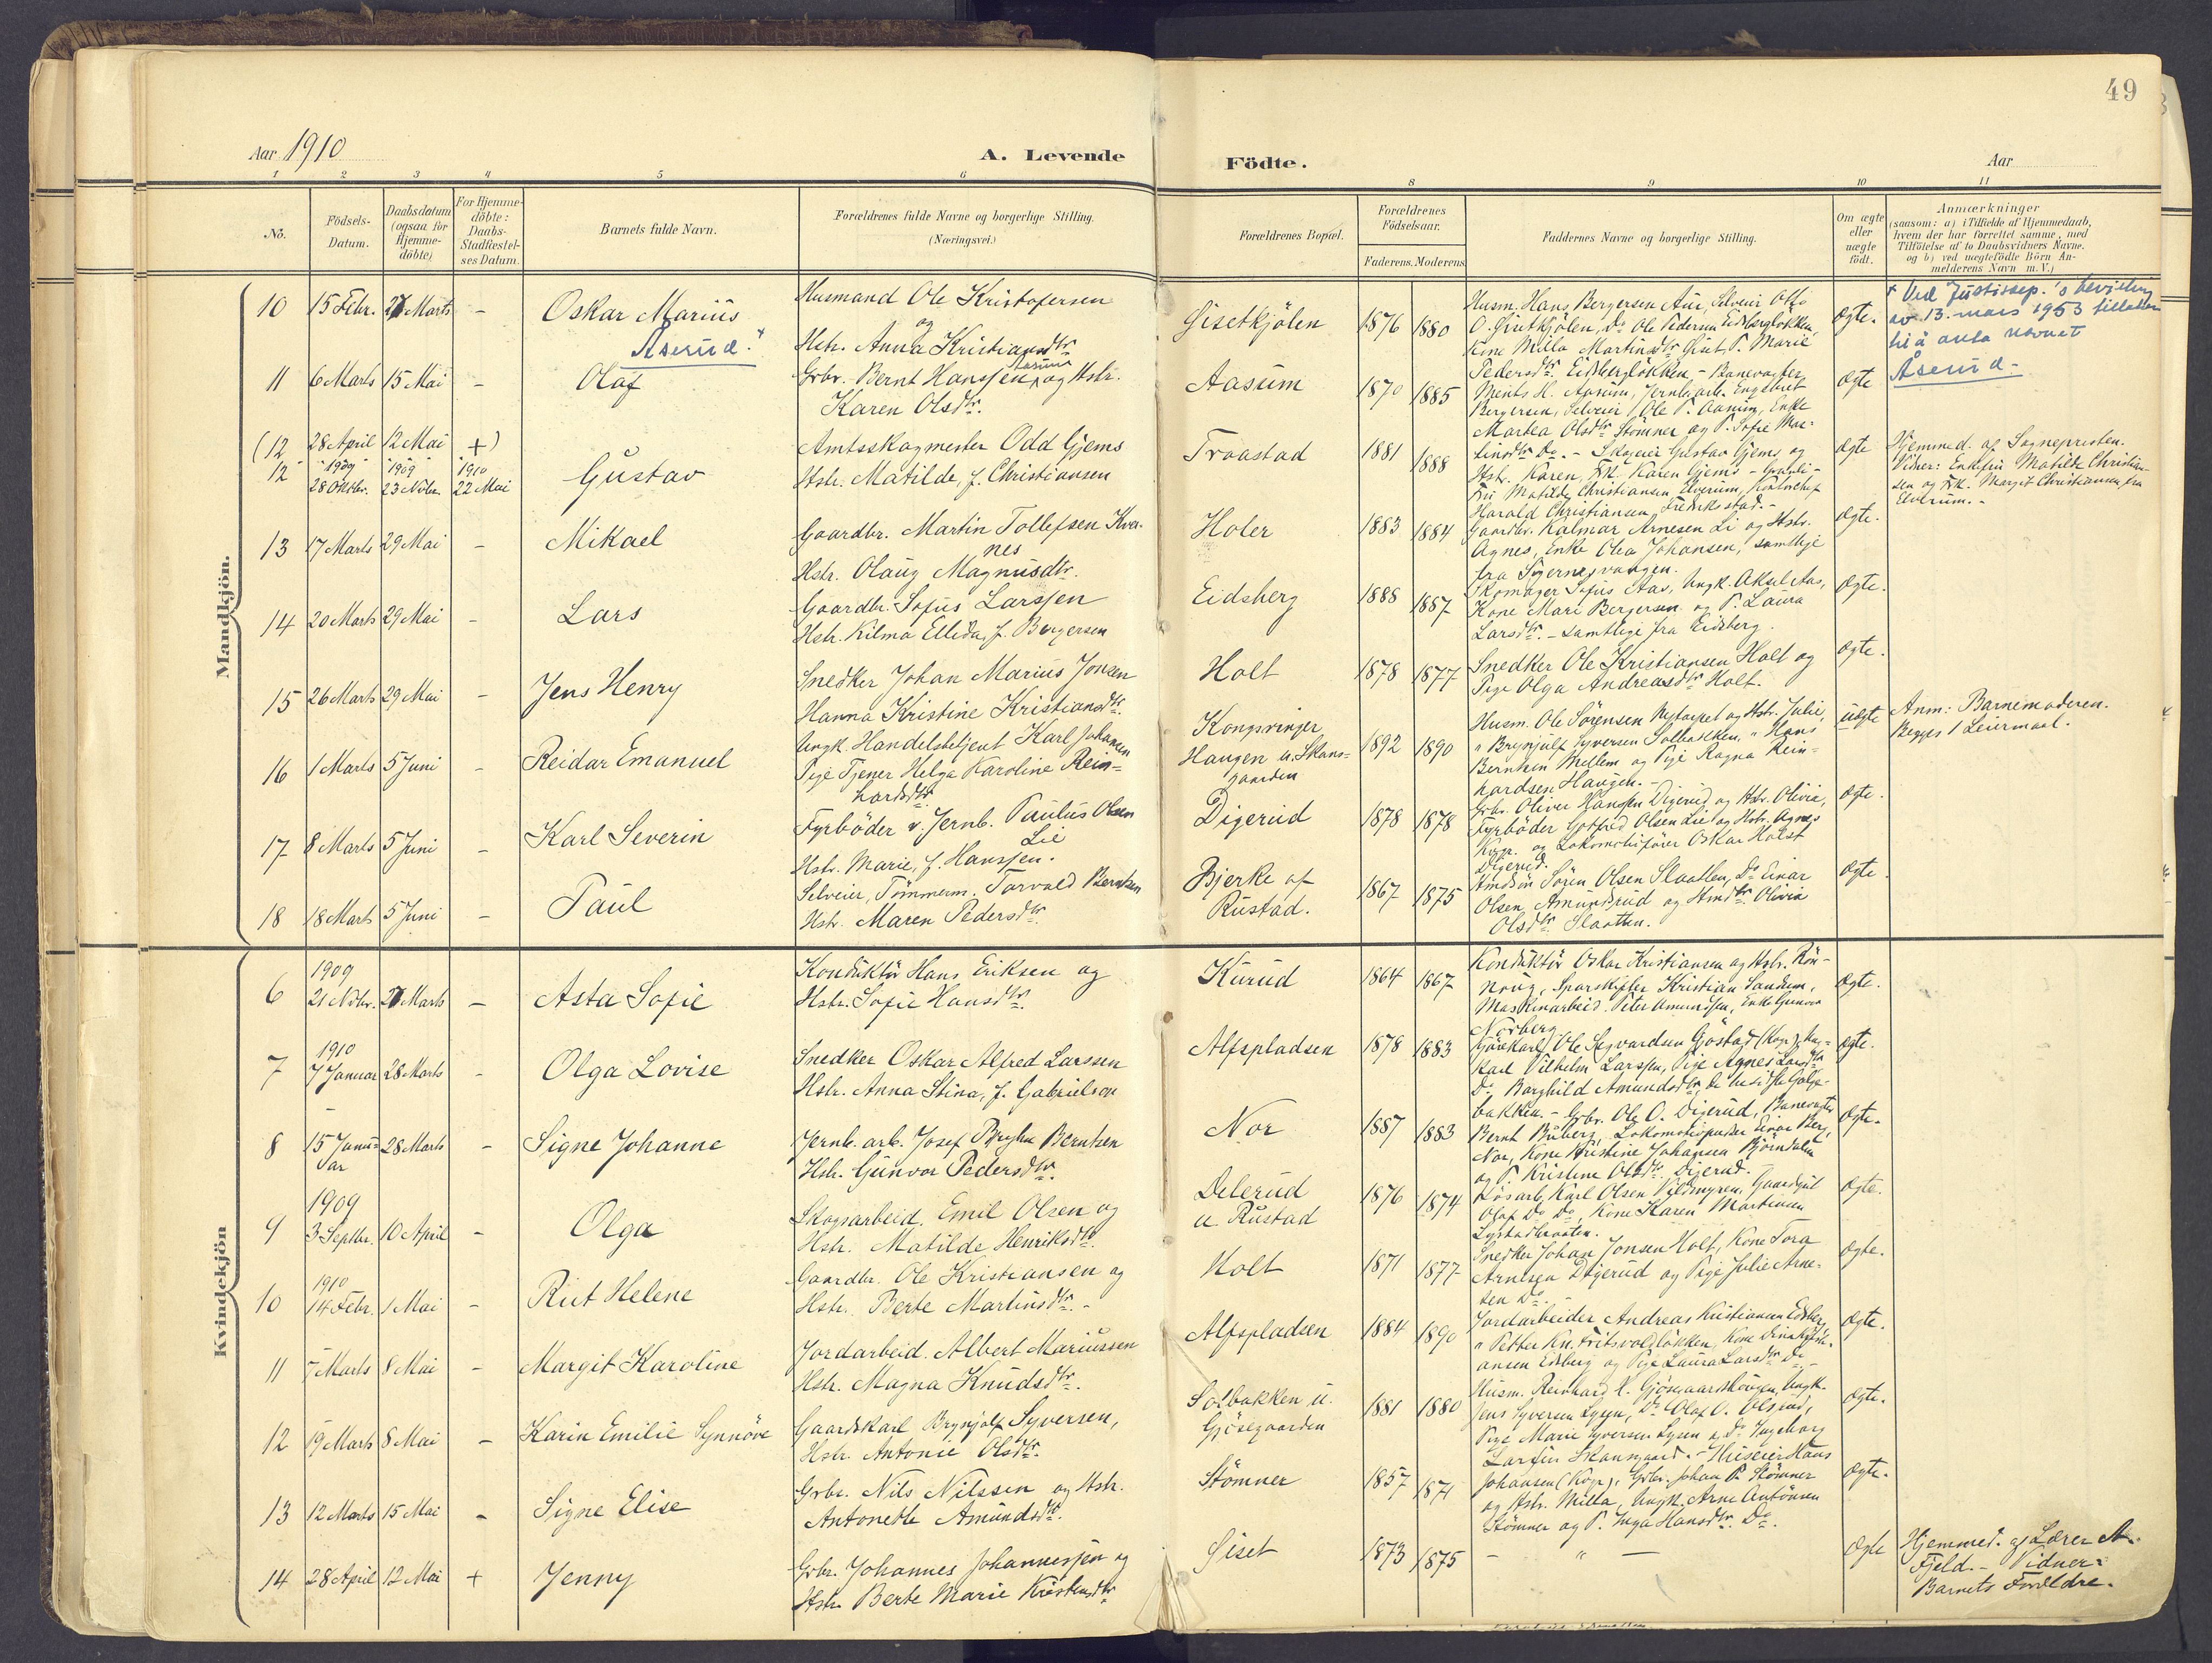 49
Aar 1910
A. Levende
Födte.
Aar
1 2 3 4 5 6 8 9 10 11
No.
Födsels-
Datum.
Daabsdatum
(ogsaa for
Hjemme-
döbte)
For Hjemme-
döbte:
Daabs-
Stadfæstel-
ses Datum.
Barnets fulde Navn.
Forældrenes fulde Navne og borgerlige Stilling.
(Næringsvei.)
Forældrenes Bopæl.
Forældrenes
Födselsaar.
Faderens. Moderens
Faddernes Navne og borgerlige Stilling.
Om ægte
eller
uægte
födt.
Anmærkninger
(saasom: a) i Tilfælde af Hjemmedaab,
hvem der har forrettet samme, med
Tilföielse af to Daabsvidners Navne.
og b) ved uægtefödte Börn An-
melderens Navn m.V.)
Mandkjön.
10 15 Febr. 27 Marts -
Oskar Marius
Åserud. +
Husmand Ole Kristofersen
og
Hstr. Anna Kristiansdtr
Gisetkjölen 1876 1880
Husm. Hans Bergersen Aur, Selveier Otto
O. Gisetkjölen, Do Ole Pedersen Eidsbergløkken,
Kone Milla Martinsdtr Giset, P. Marie
Pedersdtr. Eidsbergløkken - Banevogter
ægte.
+ Ved Justisdep.'s bevilling
av 13. mars 1953 tillatelse
til å anta navnet
Åserud -
11 6 Marts 15 Mai -
Olaf
Grbr. Bernt Hanssen Aasum, og Hstr.
Karen Olsdtr.
Aasum 1870 1885
Bergersen, Selveier Ole P. Aasum, Enke
Martea Olsdtr Stömner og P. Sofie Mar-
ægte
(12 28 April 12 Mai +)
12 1909 28 Oktbr. 1909 23 Novbr. 1910 22 Mai
Gustav
Amtsskogmester Odd Gjems
Hstr. Matilde, f. Christiansen
Traastad 1881 1888
tinsdtr Do. - Skogeier Gustav Gjems og
Hstr. Karen, Frk. Karen Gjems -
Fru Matilde Christiansen Elverum, Kontorchef
Harald Christiansen, Fredrikstad. -
ægte
Hjemmed. af Sognepresten.
Vidner: Enkefru Matilde Christian-
sen og Frk. Margit Christiansen, fra
Elverum. -
13 17 Marts 29 Mai -
Mikael
Gaardbr. Martin Tollefsen Kver-
nes
Hstr. Olaug Magnusdtr.
Holer 1883 1884
Gaardbr. Kalmar Arnesen Li og Hstr.
Agnes, Enke Olea Johansen, samtlige
fra Sigernesvangen.
ægte.
14 20 Marts 29 Mai -
Lars
Gaardbr. Sofus Larssen
Hstr. Kilma Ellida, f. Bergersen
Eidsberg 1888 1887
Skomager Sofus Aas, Ungk. Aksel Aas,
Kone Mari Bergersen og P. Laura
Larsdtr. - samtlige fra Eidsberg.
ægte.
15 26 Marts 29 Mai -
Jens Henry
Snedker Johan Marius Jonsen
Hanna Kristine Kristiansdtr.
Holt 1878 1877
Snedker Ole Kristiansen Holt og
Pige Olga Andreasdtr Holt.
ægte.
16 1 Marts 5 Juni -
Reidar Emanuel
Ungk. Handelsbetjent Karl Johansen
Pige Tjener Helga Karoline Rein-
hardsdtr.
Kongsvinger
Haugen u. Skans-
gaarden
1892 1890
Husm. Ole Sörensen Nytorpet og Hstr. Julie,
" Brynjulf Syversen Solbakken, " Hans
Berntsen Mellem og Pige Ragna Rein-
hardsen Haugen. -
uægte
Anm: Barnemoderen.
Begges 1 Leiermaal.
17 8 Marts 5 Juni -
Karl Severin
Fyrböder v. Jernb. Paulus Olsen
Lie
Hstr. Marie, f. Hanssen.
Digerud 1878 1878
Grbr. Oliver Hanssen Digerud og Hstr. Olivia,
Fyrböder Gotfred Olsen Lie og Hstr. Agnes
Kvgr. og Lokomotivförer Oskar Holst
Digerud.
ægte.
18 18 Marts 5 Juni -
Paul
Selveier, Tömmerm. Torvald Berntsen
Hstr. Maren Pedersdtr.
Bjerke af
Rustad.
1867 1875
Smdsön Sören Olsen Slaatten, Do Einar
Olsen Amundsrud og Smdtr. Olivia
Olsdtr Slaatten.
ægte
Kvindekjön
6 1909 21 Novbr. 27 Marts -
Asta Sofie
Konduktör Hans Eriksen og
Hstr. Sofie Hansdtr.
Kurud 1864 1867
Konduktör Oskar Kristiansen og Hstr. Rön-
naug, Sporskifter Kristian Sandum,
Maskinarbeid. Peter Amundsen, Enke Gunvor
Norberg
ægte.
7 1910 7 Januar 28 Marts -
Olga Lovise
Snedker Oskar Alfred Larssen
Hstr. Anna Stina, f. Gabrielson
Alfspladsen 1878 1883
Ole Sigvardsen Gjöstad (Kvgr),
Karl Vilhelm Larssen, Pige Agnes Larsdtr
Do Borghild Amundsdtr
ægte.
8 15 Janu-
ar 28 Marts -
Signe Johanne
Jernb. arb. Josef Bryhn Berntsen
Hstr. Gunvor Pedersdtr.
Nor 1887 1883
bakken. - Grbr. Ole O. Digerud, Banevogter
Bernt Buberg, Lokomotivpudser Einar Berg,
Nor, Kone Kristine Johansen Björndalen
og P. Kristine Olsdtr. Digerud.
ægte.
9 1909 3 Septbr. 10 April -
Olga
Skogsarbeid. Emil Olsen og
Hstr. Matilde Henriksdtr.
Delerud
u. Rustad
1876 1874
Lösarb. Karl Olsen Vildmyren, Gaardgut
Olaf Do Do, Kone Karen Martinsen
Lystadbraaten.
ægte.
10 1910 14 Febr. 1 Mai -
Rut Helene
Gaardbr. Ole Kristiansen og
Hstr. Berte Martinsdtr. -
Holt 1871 1877
Snedker Johan Jonsen Holt, Kone Tora
Arnesen Digerud og Pige Julie Arne-
sen Do. -
ægte.
11 7 Marts 8 Mai -
Margit Karoline
Jordarbeid. Albert Mariussen
Hstr. Magna Knudsdtr.
Alfspladsen 1884 1890
Jordarbeider Andreas Kristiansen Edsberg,
" Petter Kr. Fritsvoldlökken, Kone Dina Kristi-
ansen Edsberg og Pige Laura Larsdtr Do -
ægte.
12 19 Marts 8 Mai -
Karin Emilie Synnöve
Gaardskarl Brynjulf Syversen,
Hstr. Antonie Olsdtr.
Solbakken u.
Gjösegaarden
1881 1880
Husm. Reinhard H. Gjösegaardshaugen, Ungk.
Jens Syversen Lysen, Do Olaf O. Olsrud,
Pige Marie Syversen Lysen & Do Ingeborg
Larsen Skansgaard. - Huseier Hans
ægte.
13 12 Marts 15 Mai -
Signe Elise
Grbr. Nils Nilssen og Hstr.
Antonette Amundsdtr.
Stömner 1857 1871
Johansen (Kvgr), Grbr. Johan P. Stömner
og Hstr. Milla, Ungk. Arne Antonsen
Stömner og P. Inga Hansdtr. Do.
ægte.
14 28 April 12 Mai +
Jenny
Grbr. Johannes Johannessen og
Hstr. Berte Marie Kristensdtr
Giset 1873 1875
- " -
ægte
Hjemmed. af Lærer A.
Fjeld. - Vidner:
Barnets Forældre.